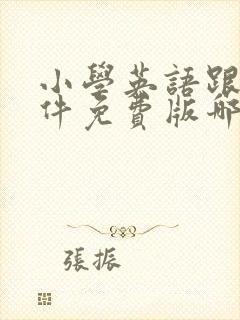 小學英語跟
件免費版哪
張振